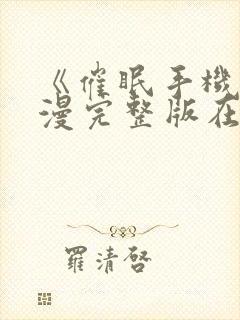 《催眠手機
漫完整版在
羅清啓